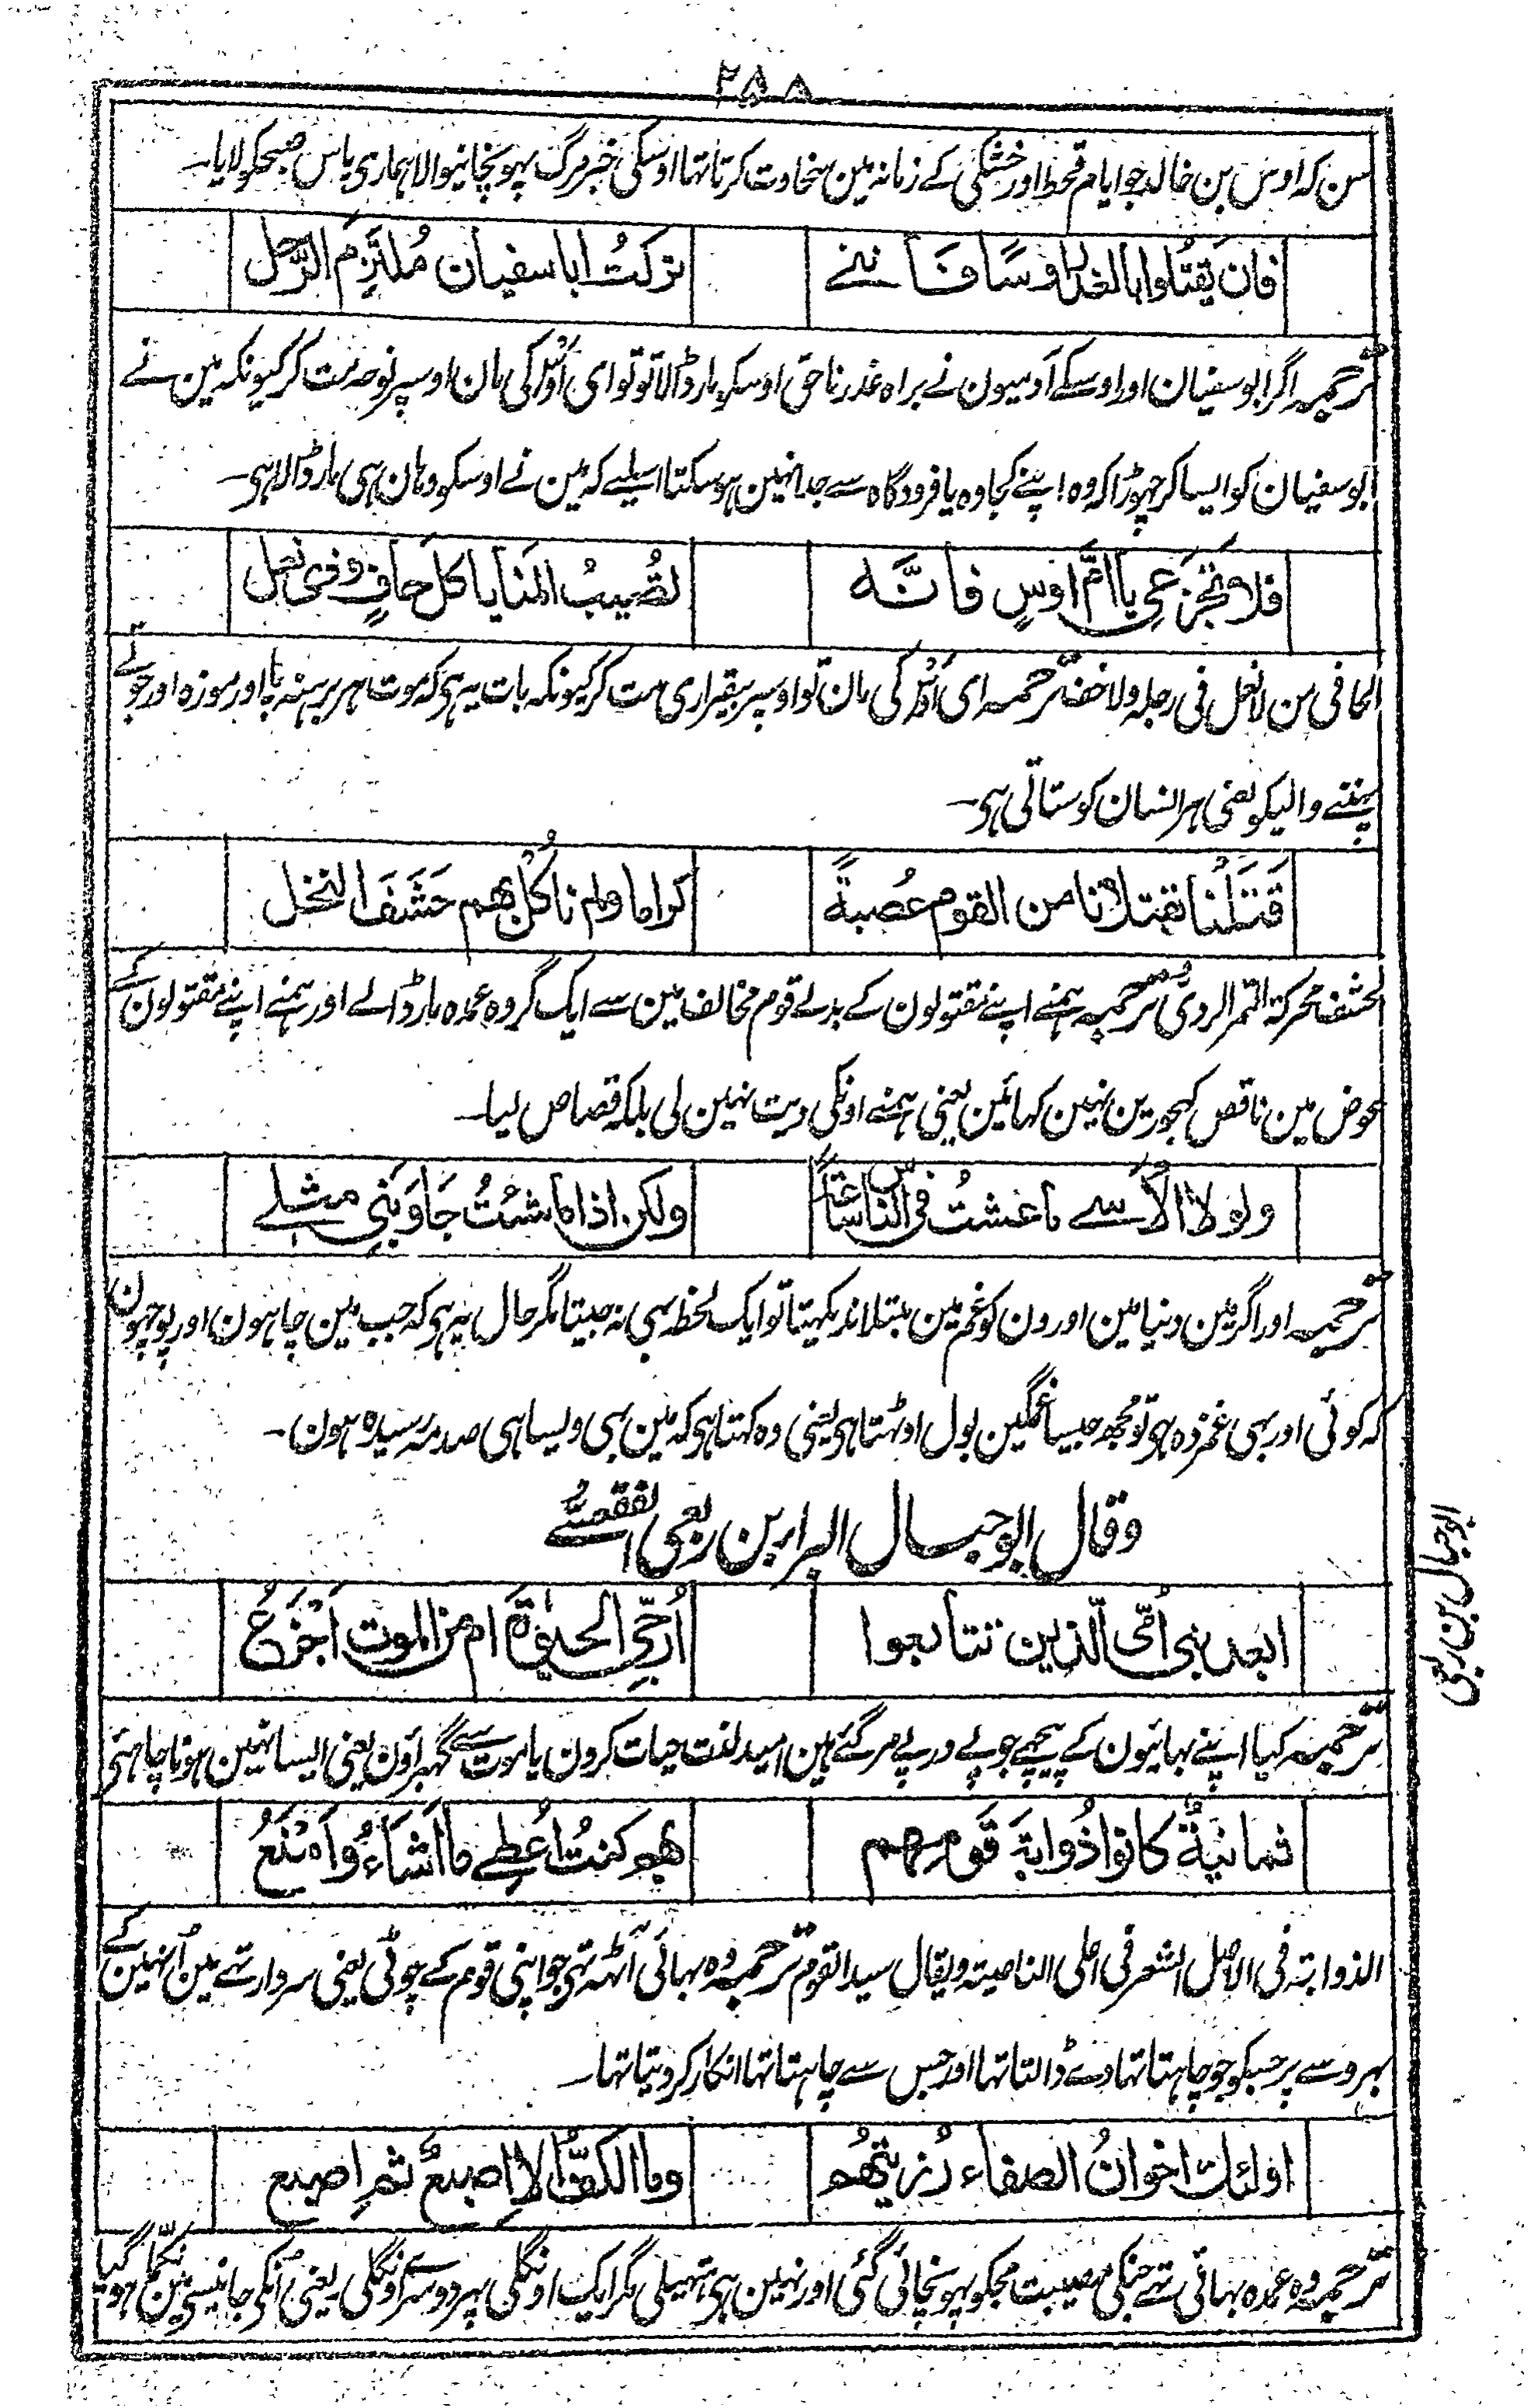 ۲۵۸
سن کہ اوس بن خالد جو ایام قحط اور خشکی کے زمانہ مین سخاوت کرتا تہا اوسکی خبر مرگ پہونچانیوالا ہماری پاس صبحکو لایا۔
فان يقتلوا بالغدر اوسًا فانني تركتُ ابا سفيان مُلتزِمَ الرَّحل
ترجمہ اگر ابو سفیان اور اوسکے آدمیون نے براہ غدر ناحق اوسکو مار ڈالا تو تو ای اَوس کی مان اوسپر نوحہ مت کر کیونکہ مین نے
ابو سفیان کو ایسا کر چہوڑا کہ وہ اپنے کجاوہ یا فرودگاہ سے جدا نہین ہو سکتا اسلیے کہ مین نے اوسکو وہان ہی مار ڈالا ہی۔
فلا تجزَعي يا امَّ اوسٍ فانَّه تُصيبُ المنايا كل حافٍ وذي نعل
الحافی من لا نعل فی رجلہ ولا خف ترجمہ ای اَوس کی مان تو اوسپر بیقراری مت کر کیونکہ بات یہ ہی کہ موت ہر برہنہ پا اور موزہ اور جوتے
پہننے والیکو یعنی ہر انسان کو ستاتی ہی۔
قَتَلْنا بقتلانا من القوم عُصبةً كراما ولم ناكُل بهم حَشَفَ النخل
الحشف محرکۃ التمر الردیٔ ترجمہ ہمنے اپنے مقتولون کے بدلے قوم مخالف مین سے ایک گروہ عمدہ مار ڈالے اور ہمنے اپنے مقتولون کے
عوض مین ناقص کہجورین نہین کہائین یعنی ہمنے اونکی دیت نہین لی بلکہ قصاص لیا۔
ولولا الاُسے ما عشتُ في الناس ساعةً ولكن اذا ما شئتُ جاوَبَني مثلے
ترجمہ اور اگر مین دنیا مین اورون کو غم مین مبتلا ندیکہتا تو ایک لحظہ بہی نہ جیتا مگر حال یہ ہی کہ جب مین چاہون اور پوچہون
کہ کوئی اور بہی غمزدہ ہی تو مجھ جیسا غمگین بول اوٹہتا ہی یعنی وہ کہتا ہی کہ مین بہی ویسا ہی صدمہ رسیدہ ہون۔
وقال ابو حبال البراء بن ربعی الفقعسے
ابو حبال بن ربعی
ابعد بني اُمّي الّذين تتابعوا اُرجّي الحيٰوةَ ام من الموت اَجْزَعُ
ترجمہ کیا اپنے بہائیون کے پیچہے جو پے در پے مر گئے ہین امید لذت حیات کرون یا موت سے گہبراؤن یعنی ایسا نہین ہونا چاہئی
ثمانيةٌ كانوا ذُوابةَ قومهم بهم كنتُ اُعطے ما اشاءُ واَمْنَعُ
الذوابۃ فی الاصل الشعر فی اعلی الناصیۃ ویقال سید القوم ترجمہ وہ بہائی آٹہہ تہی جو اپنی قوم کے چوٹی یعنی سردار تہے مین اُنہین کے
بہروسے پر جسکو جو چاہتا تہا دے ڈالتا تہا اور جس سے چاہتا تہا انکار کر دیتا تہا۔
اولئك اخوانُ الصفاء رُزيتهُم وما الكفُّ الا اِصبعٌ ثم اِصبع
ترجمہ وہ عمدہ بہائی تہے جنکی مصیبت مجکو پہونچائی گئی اور نہین ہی ہتہیلی مگر ایک اونگلی پہر دوسرے اونگلی یعنی اُنکی جانیسے مین نکمّا ہو گیا